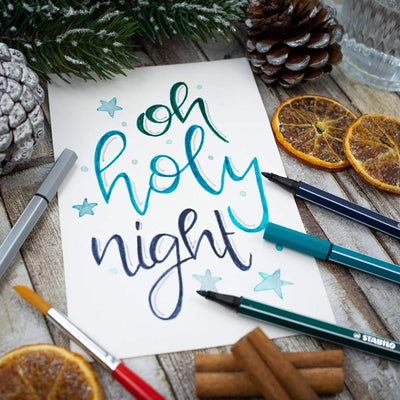 oh
holy
night
STABILO